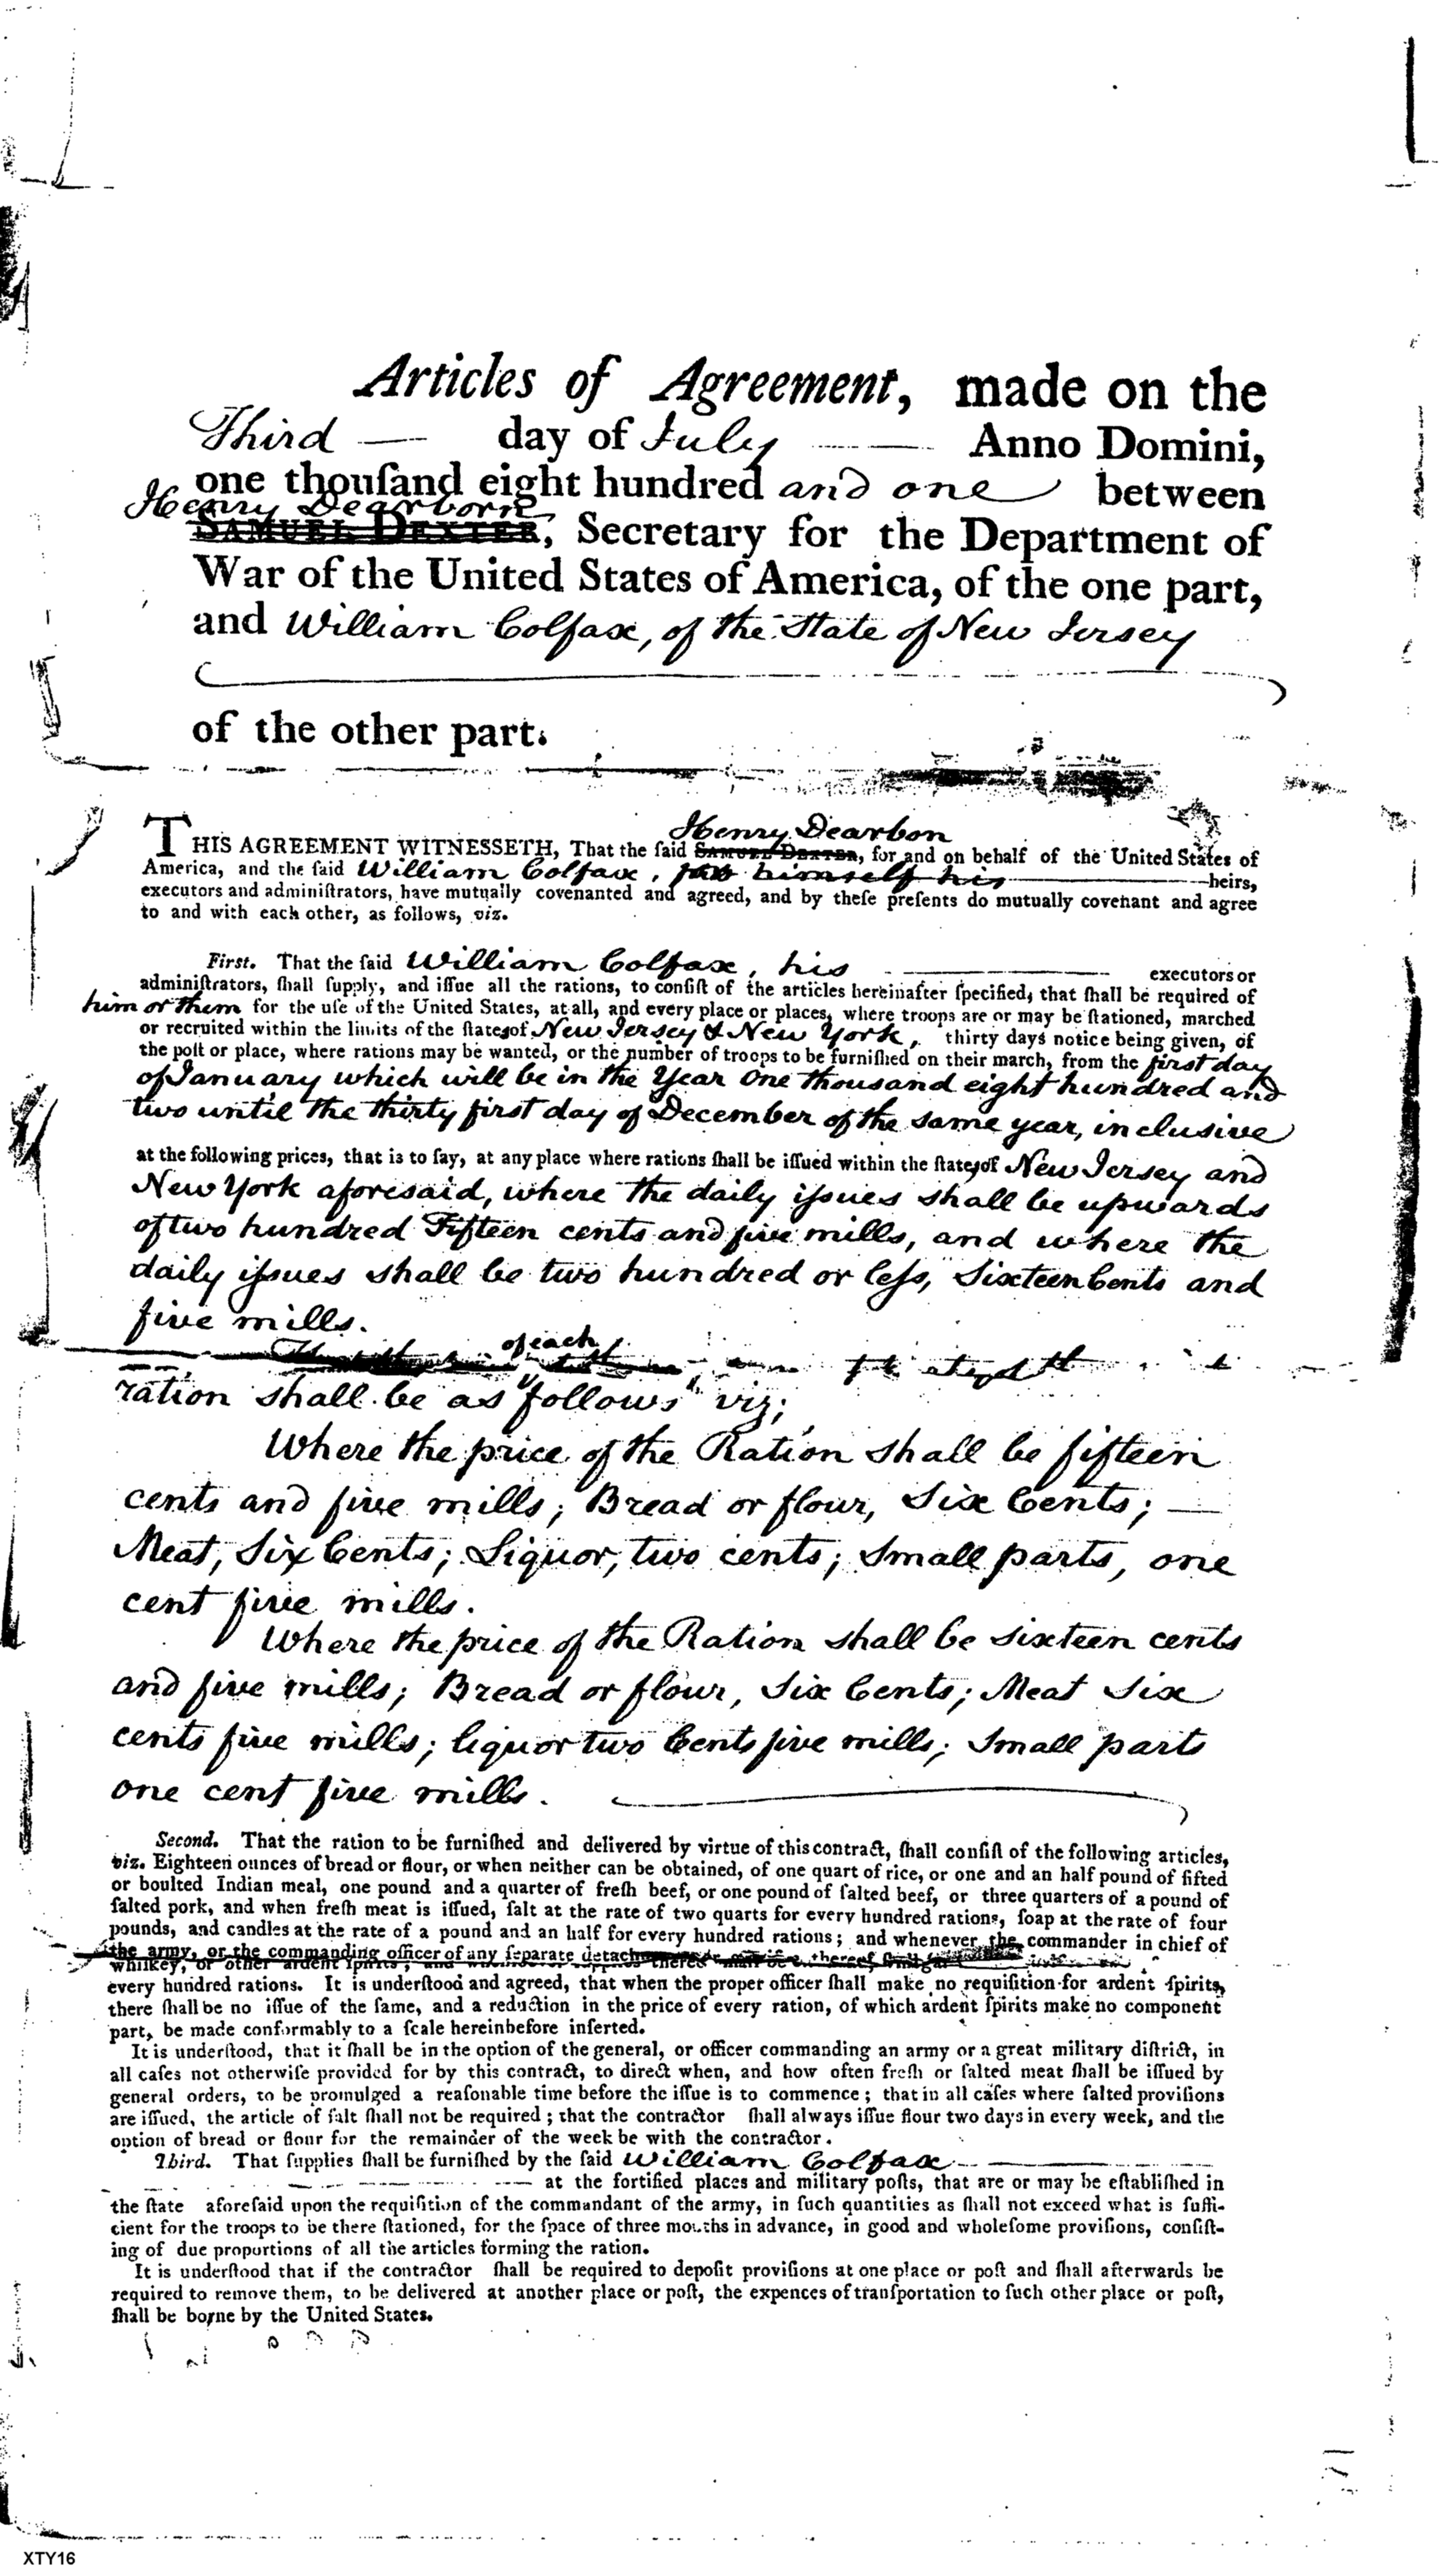 Articles of Agreement, made on the
Third — day of July — Anno Domini,
one thouſand eight hundred and one between
Henry Dearborn
SAMUEL DEXTER, Secretary for the Department of
War of the United States of America, of the one part,
and William Colfax, of the State of New Jersey
of the other part.
Henry Dearbon
THIS AGREEMENT WITNESSETH, That the ſaid SAMUEL DEXTER, for and on behalf of the United States of
America, and the ſaid William Colfax, himself his heirs,
executors and adminiſtrators, have mutually covenanted and agreed, and by theſe preſents do mutually covenant and agree
to and with each other, as follows, viz.
First. That the ſaid William Colfax, his executors or
adminiſtrators, ſhall ſupply, and iſſue all the rations, to conſiſt of the articles hereinafter ſpecified, that ſhall be required of
him or them for the uſe of the United States, at all, and every place or places, where troops are or may be ſtationed, marched
or recruited within the limits of the ſtates of New Jersey & New York, thirty days notice being given, of
the poſt or place, where rations may be wanted, or the number of troops to be furniſhed on their march, from the first day
of January which will be in the Year One thousand eight hundred and
two until the thirty first day of December of the same year, inclusive
at the following prices, that is to ſay, at any place where rations ſhall be iſſued within the ſtates of New Jersey and
New York aforesaid, where the daily iſsues shall be upwards
of two hundred Fifteen cents and five mills, and where the
daily iſsues shall be two hundred or leſs, Sixteen Cents and
five mills.
of each
ration shall be as follows viz;
Where the price of the Ration shall be fifteen
cents and five mills; Bread or flour, Six Cents; —
Meat, Six Cents; Liquor, two cents; Small parts, one
cent five mills.
Where the price of the Ration shall be sixteen cents
and five mills; Bread or flour, Six Cents; Meat Six
cents five mills; liquor two Cents five mills; Small parts
one cent five mills.
Second. That the ration to be furniſhed and delivered by virtue of this contract, ſhall conſiſt of the following articles,
viz. Eighteen ounces of bread or flour, or when neither can be obtained, of one quart of rice, or one and an half pound of ſifted
or boulted Indian meal, one pound and a quarter of freſh beef, or one pound of ſalted beef, or three quarters of a pound of
ſalted pork, and when freſh meat is iſſued, ſalt at the rate of two quarts for every hundred rations, ſoap at the rate of four
pounds, and candles at the rate of a pound and an half for every hundred rations; and whenever the commander in chief of
the army, or the commanding officer of any ſeparate
whiſkey, or other ardent ſpirits
every hundred rations. It is underſtood and agreed, that when the proper officer ſhall make no requiſition for ardent ſpirits,
there ſhall be no iſſue of the ſame, and a reduction in the price of every ration, of which ardent ſpirits make no component
part, be made conformably to a ſcale hereinbefore inſerted.
It is underſtood, that it ſhall be in the option of the general, or officer commanding an army or a great military diſtrict, in
all caſes not otherwiſe provided for by this contract, to direct when, and how often freſh or ſalted meat ſhall be iſſued by
general orders, to be promulged a reaſonable time before the iſſue is to commence; that in all caſes where ſalted proviſions
are iſſued, the article of ſalt ſhall not be required; that the contractor ſhall always iſſue flour two days in every week, and the
option of bread or flour for the remainder of the week be with the contractor.
Third. That ſupplies ſhall be furniſhed by the ſaid William Colfax
at the fortified places and military poſts, that are or may be eſtabliſhed in
the ſtate aforeſaid upon the requiſition of the commandant of the army, in ſuch quantities as ſhall not exceed what is ſuffi-
cient for the troops to be there ſtationed, for the ſpace of three months in advance, in good and wholeſome proviſions, conſiſt-
ing of due proportions of all the articles forming the ration.
It is underſtood that if the contractor ſhall be required to depoſit proviſions at one place or poſt and ſhall afterwards be
required to remove them, to be delivered at another place or poſt, the expences of tranſportation to ſuch other place or poſt,
ſhall be borne by the United States.
XTY16